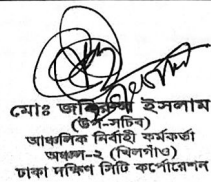 মোঃ ইসলাম
(উপ-সচিব)
আঞ্চলিক নির্বাহী কর্মকর্তা
অঞ্চল-২ (খিলগাঁও)
ঢাকা দক্ষিণ সিটি কর্পোরেশন